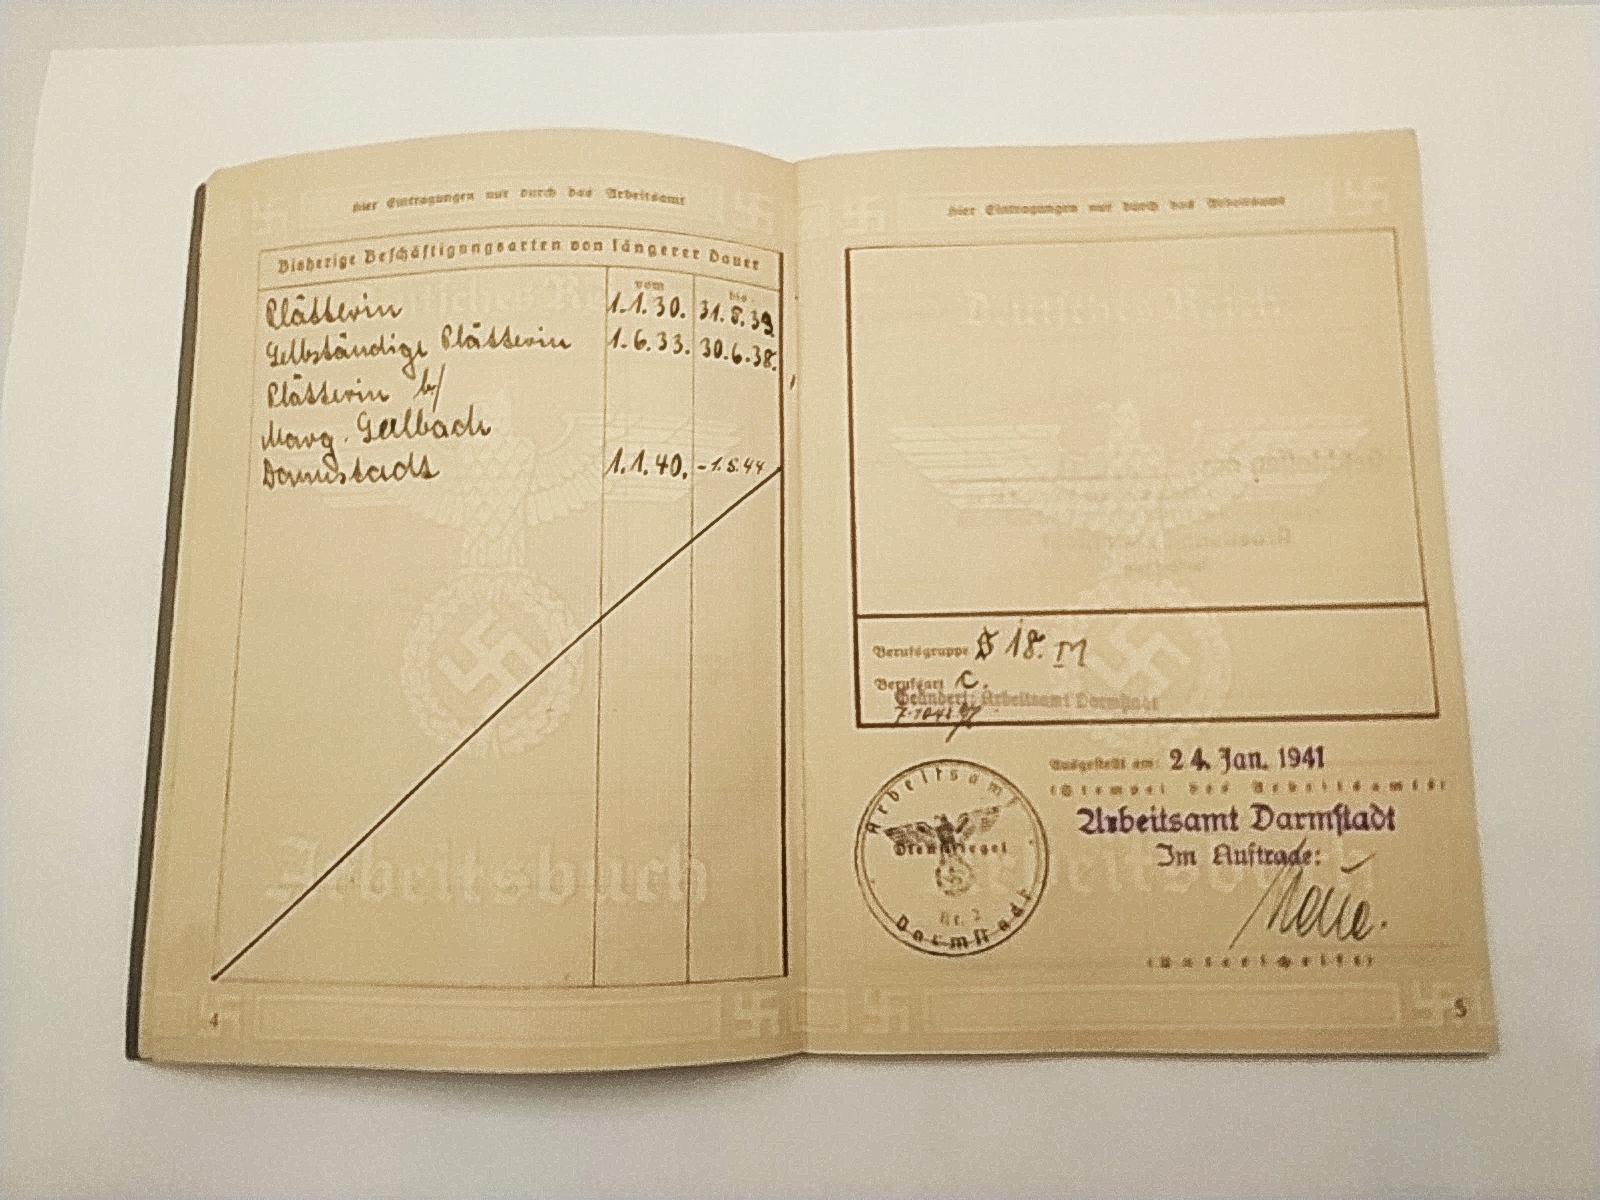 Hier Eintragungen nur durch das Arbeitsamt
Bisherige Beschäftigungsarten von längerer Dauer
vom bis
Plätterin 1.1.30. 31.8.39
Selbständige Plätterin 1.6.33. 30.6.38.
Plätterin b/
Marg. Gelbach
Darmstadt 1.1.40. - 1.5.44
Deutsches Reich
Arbeitsbuch
4
Hier Eintragungen nur durch das Arbeitsamt
Berufsgruppe 18. M
Berufsart c.
Geändert: Arbeitsamt Darmstadt
Ausgestellt am: 24. Jan. 1941
(Stempel des Arbeitsamts)
Arbeitsamt Darmstadt
Im Auftrage:
(Unterschrift)
Arbeitsamt
Dienstsiegel
Nr. 2
Darmstadt
5